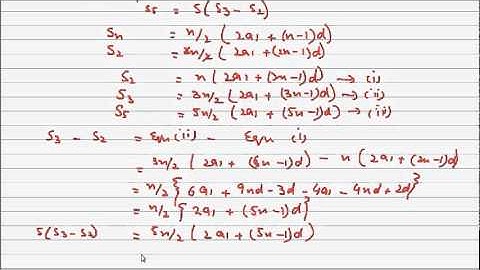 S5 = 5(S3 - S2)
Sn = n/2 (2a1 + (n-1)d)
S2 = 2n/2 (2a1 + (2n-1)d)
S2 = n(2a1 + (2n-1)d) → (i)
S3 = 3n/2 (2a1 + (3n-1)d) → (ii)
S5 = 5n/2 (2a1 + (5n-1)d) → (iii)
S3 - S2 = Eqn (ii) - Eqn (i)
= 3n/2 (2a1 + (3n-1)d) - n(2a1 + (2n-1)d)
= n/2 {6a1 + 9nd - 3d - 4a1 - 4nd + 2d}
= n/2 {2a1 + (5n-1)d}
5(S3-S2) = 5n/2 (2a1 + (5n-1)d)